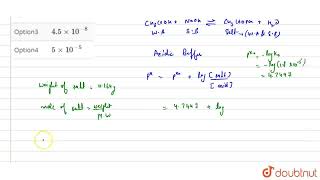 Option3 4.5 × 10⁻⁸
Option4 5 × 10⁻⁵
CH₃COOH + NaOH ⇌ CH₃COONa + H₂O
W.A S.B Salt → (W.A & S.B)
Acidic Buffer
pH = pKa + log [salt] / [acid]
pKa = -log Ka
= 4.7447
weight of salt =
mole of salt = weight / M.W
= 4.7447 + log
doubtnut